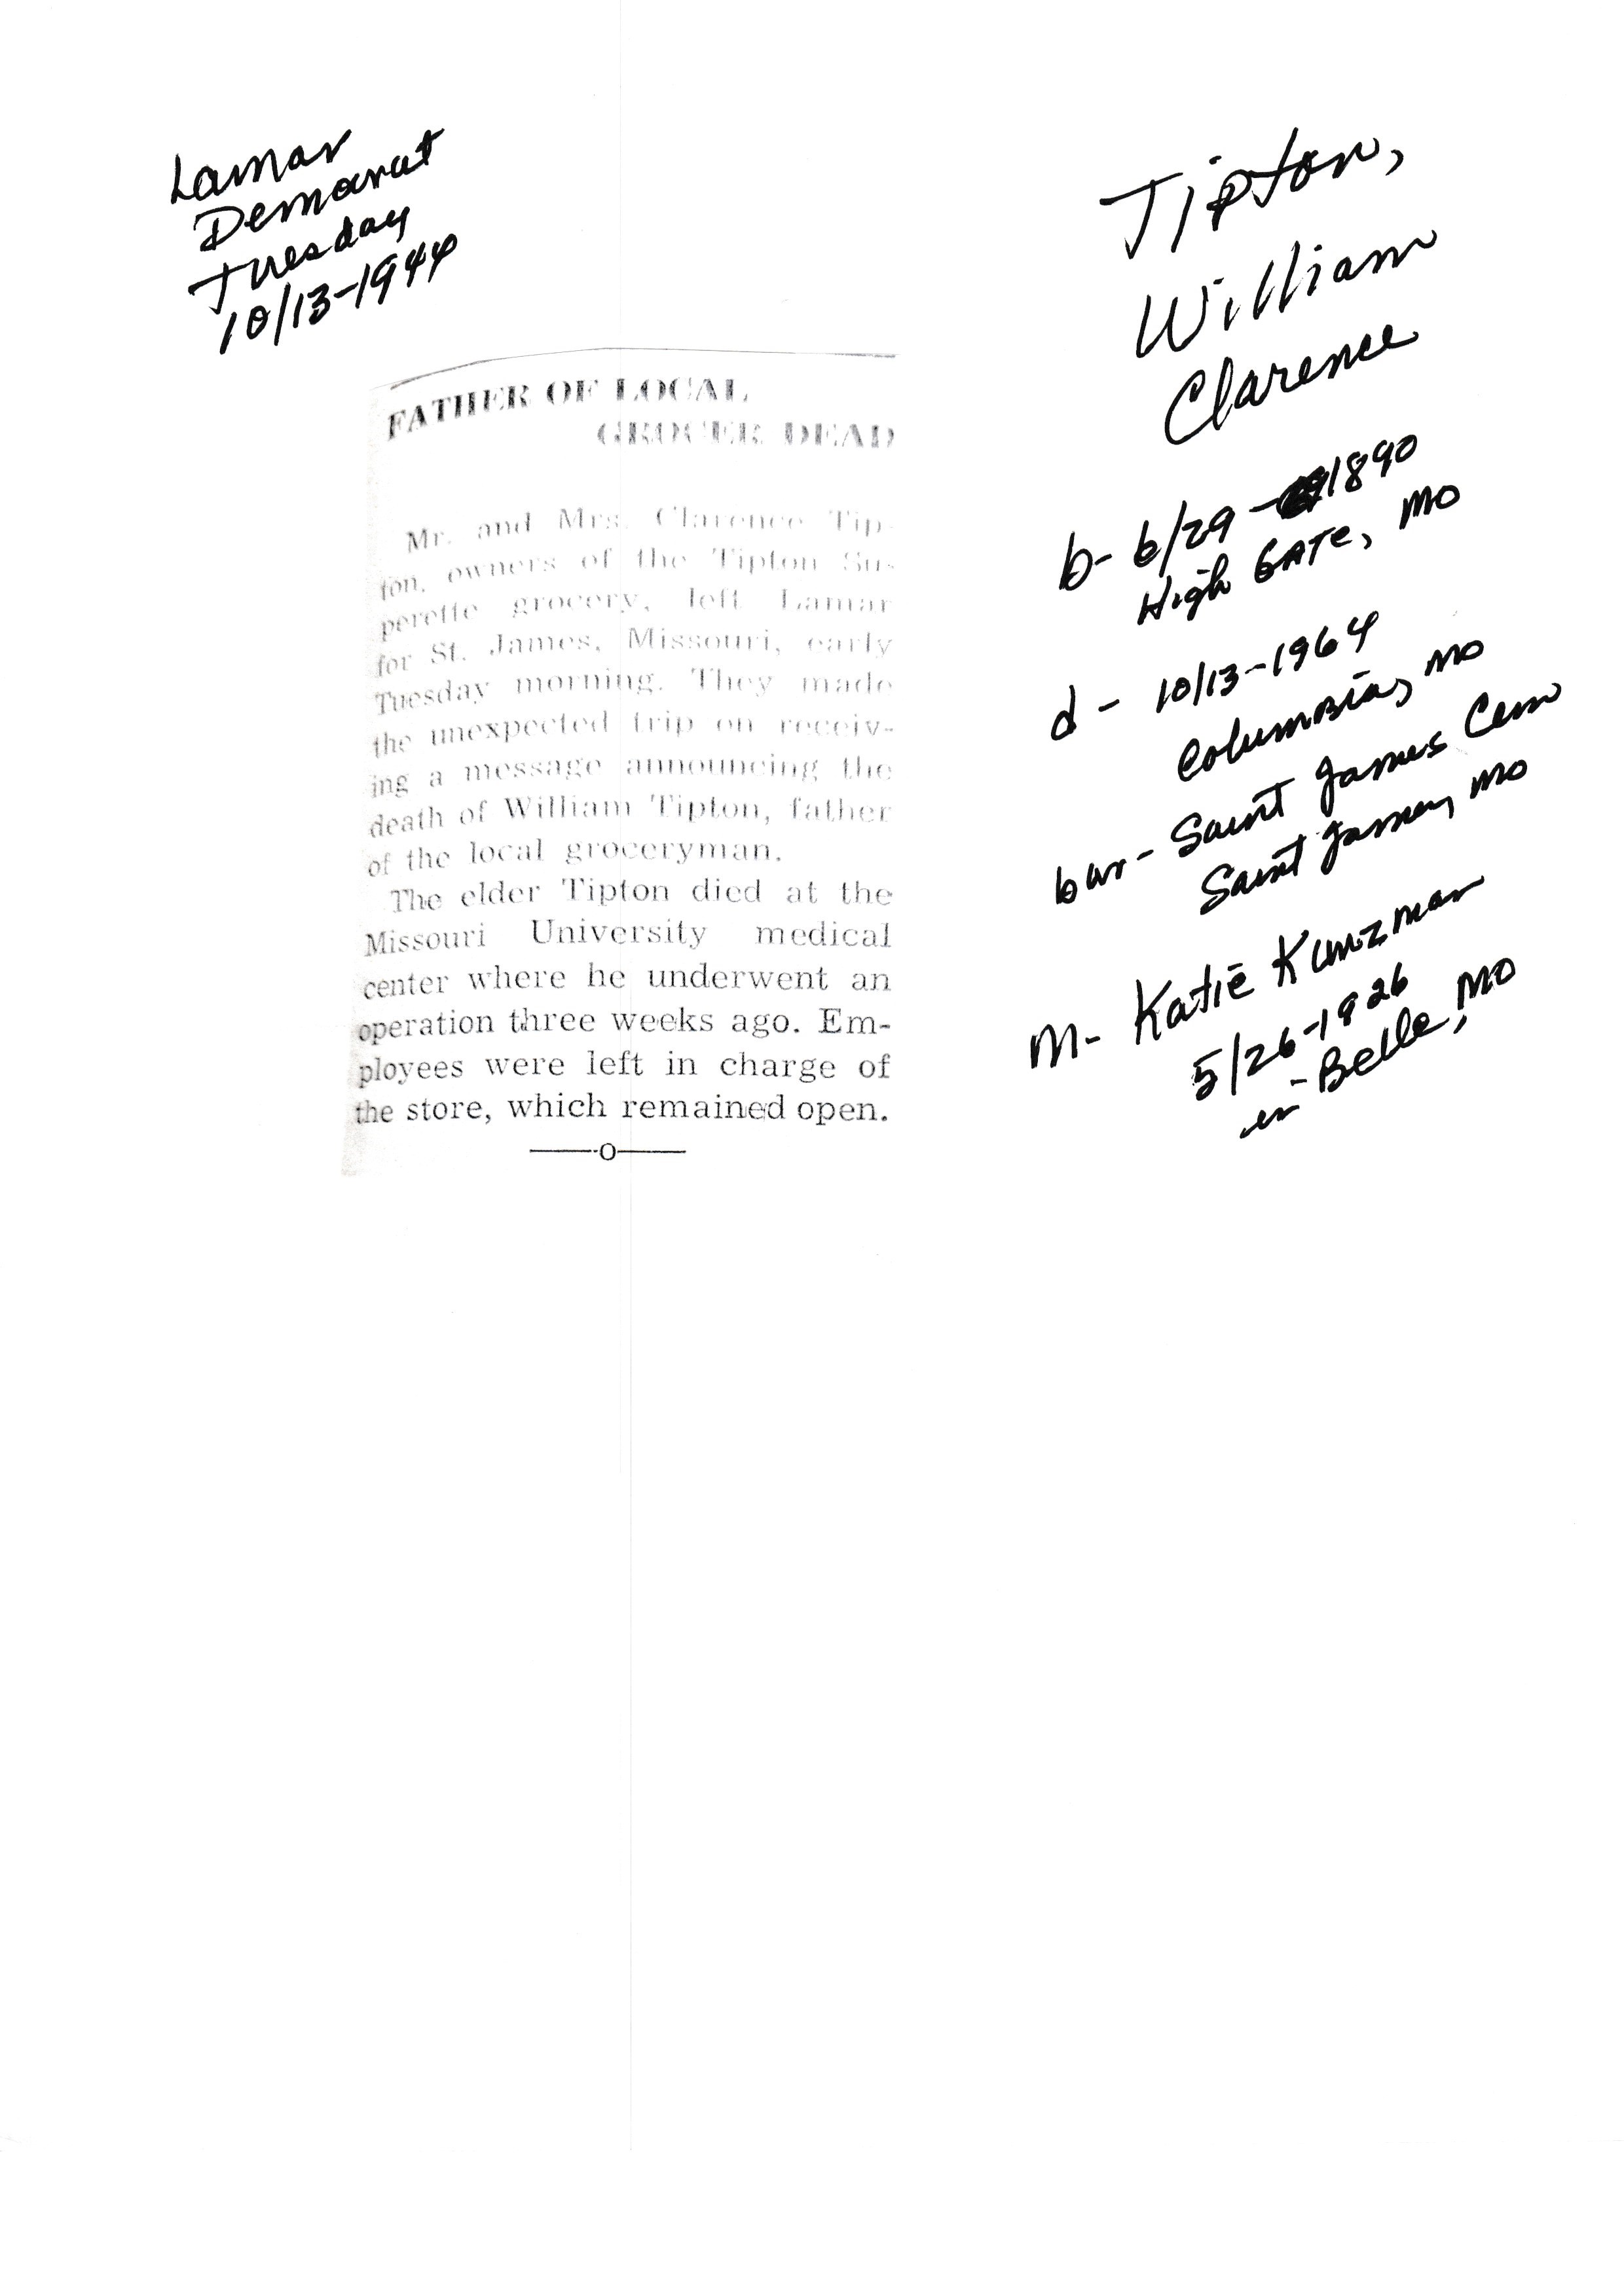 Lamar
Demorat
Tuesday
10/13-1944
FATHER OF LOCAL
GROCER DEAD
Mr. and Mrs. Clarence Tip-
ton, owners of the Tipton Su-
perette grocery, left Lamar
for St. James, Missouri, early
Tuesday morning. They made
the unexpected trip on receiv-
ing a message announcing the
death of William Tipton, father
of the local groceryman.
The elder Tipton died at the
Missouri University medical
center where he underwent an
operation three weeks ago. Em-
ployees were left in charge of
the store, which remained open.
—o—
Tipton,
William
Clarence
b- 6/29-1890
High GATE, MO
d- 10/13-1964
Columbia, MO
bur- Saint James Cem
Saint James, MO
M- Katie Kunzman
5/26-1926
in-Belle, MO